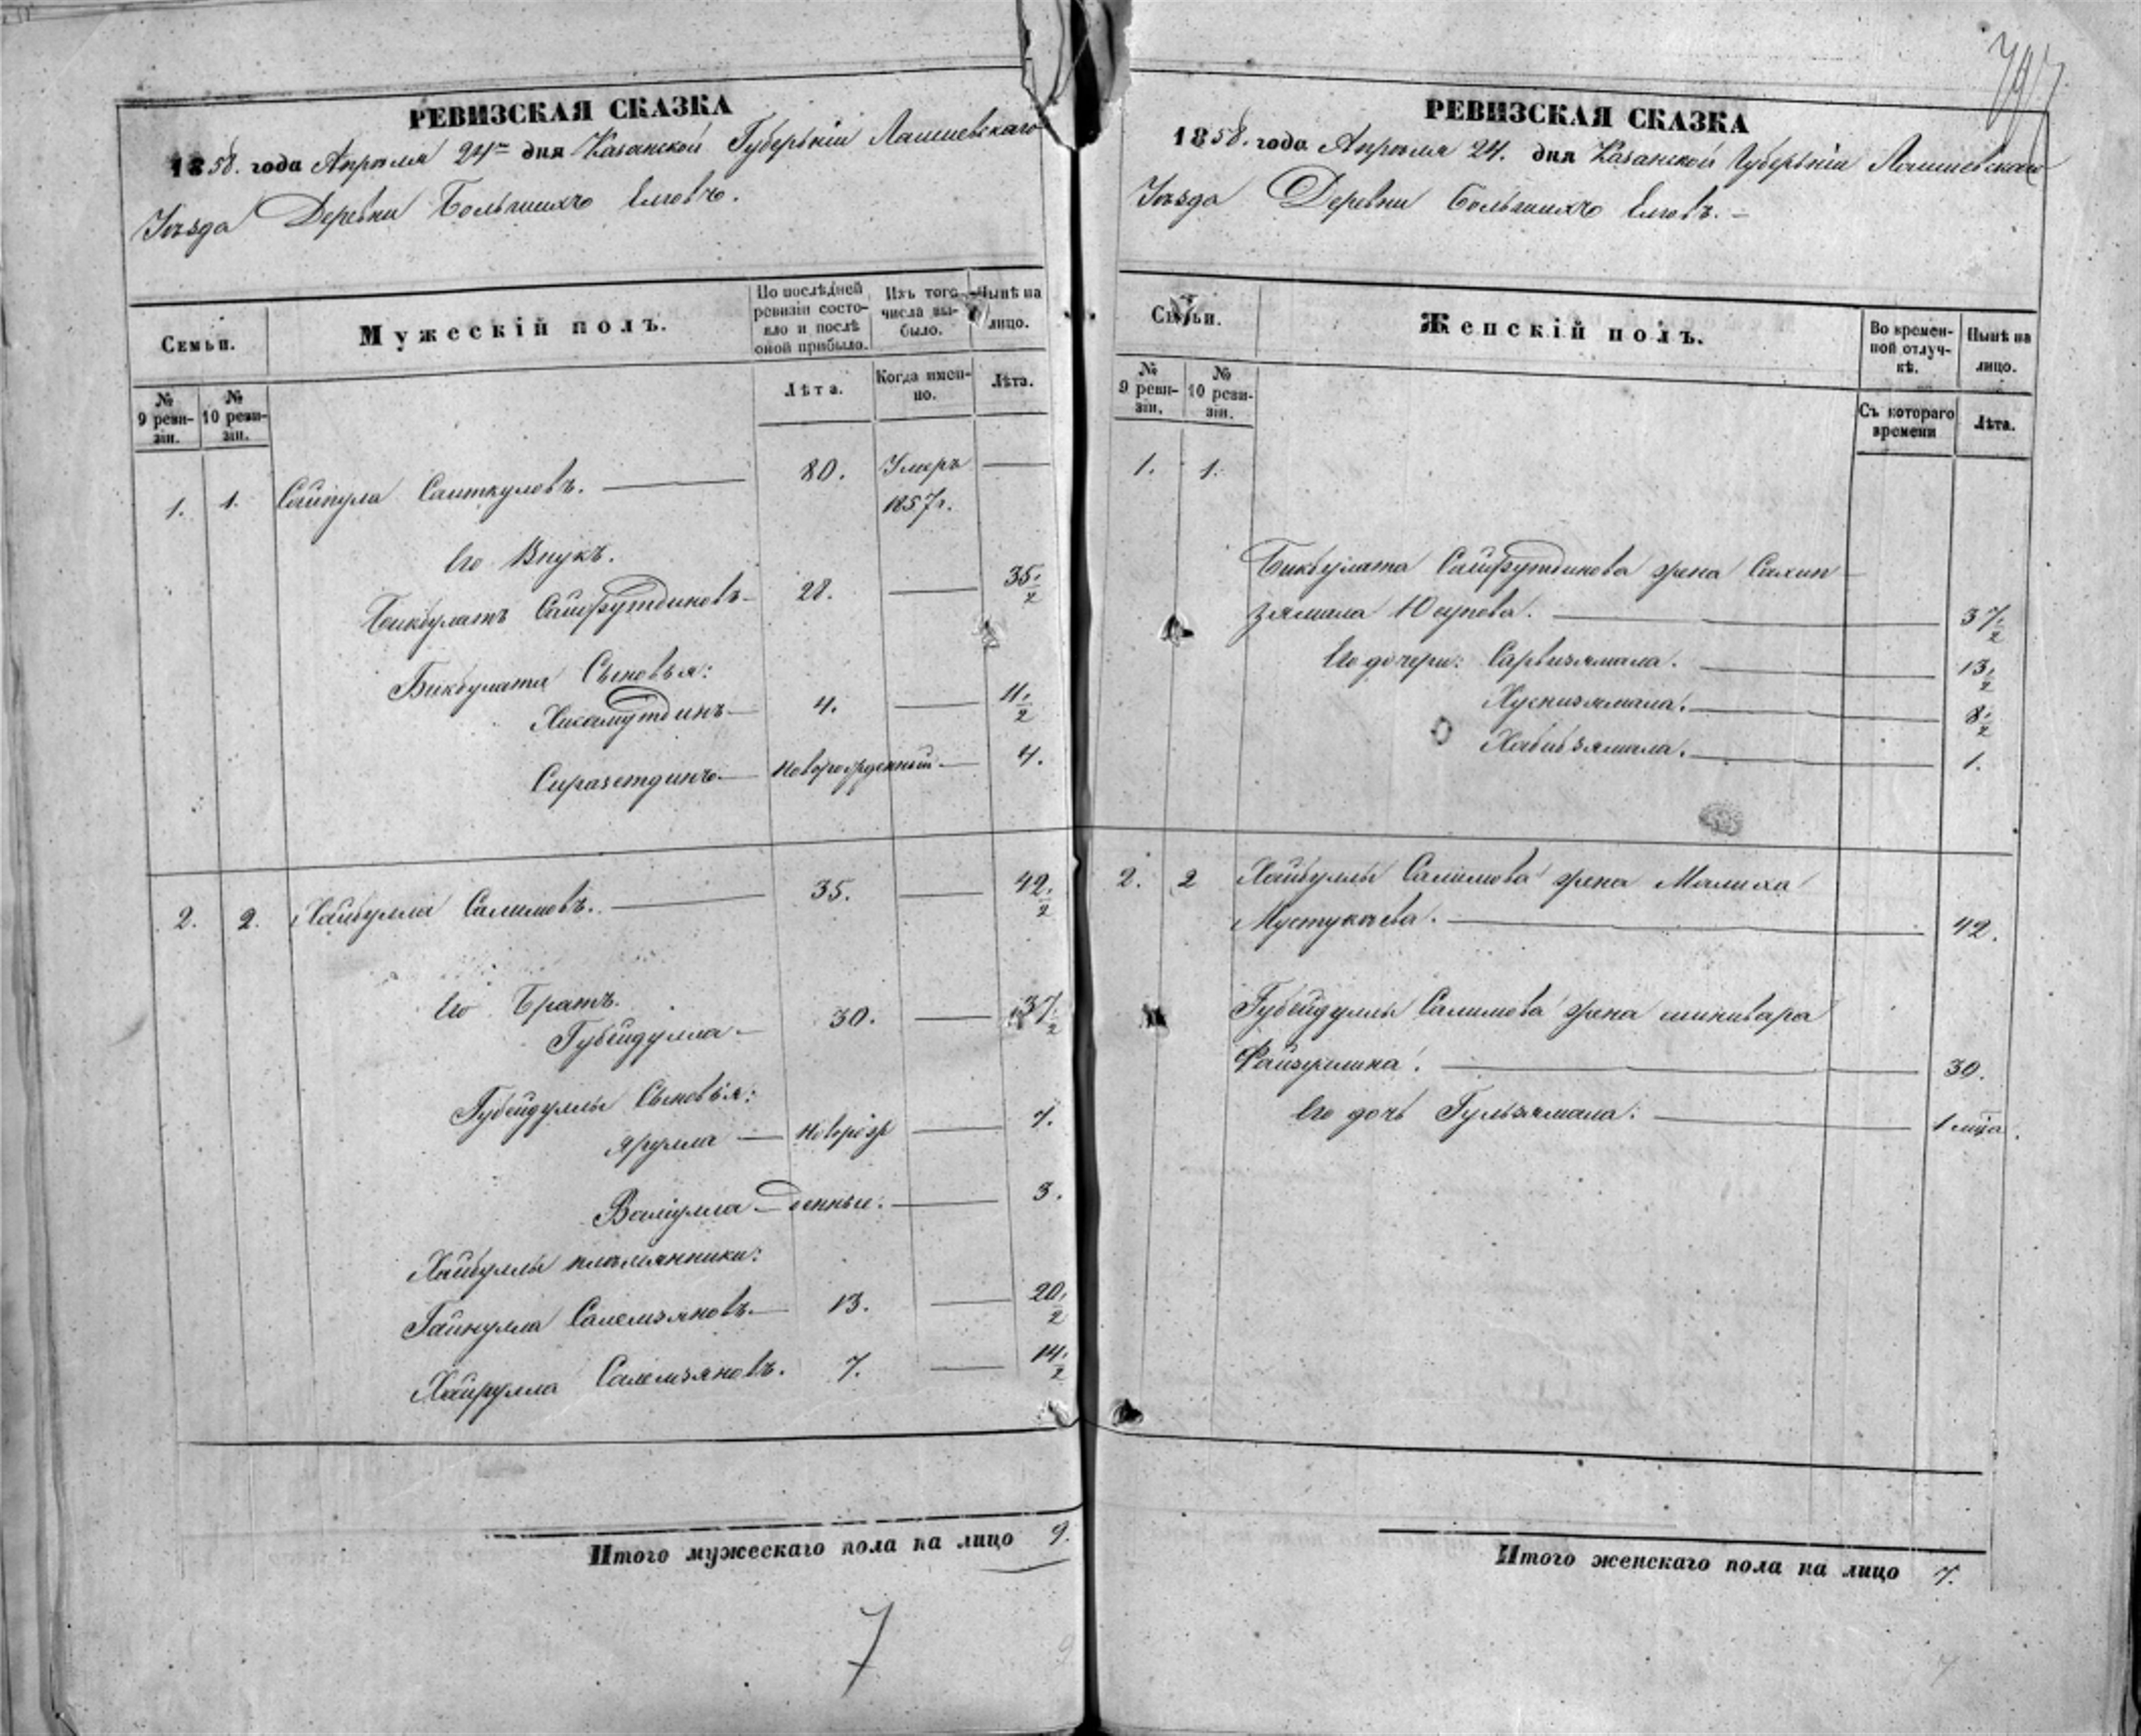 РЕВИЗСКАЯ СКАЗКА
1858. года Апрѣля 24го дня Казанской Губерніи Лаишевскаго
Уѣзда Деревни Большихъ Елговъ.
Семьи.
Мужескій полъ.
По послѣдней ревизіи состояло и послѣ оной прибыло.
Изъ того числа выбыло.
Нынѣ на лицо.
№ 9 ревизіи.
№ 10 ревизіи.
Лѣта.
Когда именно.
Лѣта.
1. 1. Сайпула Саиткуловъ. — 80. Умеръ —
1857г.
Его Внукъ.
Бикбулатъ Сайфутдиновъ — 28. — 35 1/2
Бикбулата Сыновья:
Хисамутдинъ — 4. — 11 1/2
Сиразетдинъ — новорожденный — 4.
2. 2. Хайбулла Салимовъ. — 35. — 42 1/2
Его Братъ.
Губейдулла — 30. — 37 1/2
Губейдуллы Сыновья:
Ярулла — новорож — 7.
Валіулла — денные. — 3.
Хайбуллы племянники:
Гайнулла Салемзяновъ — 13. — 20 1/2
Хайрулла Салемзяновъ. 7. — 14 1/2
Итого мужескаго пола на лицо 9.
7
РЕВИЗСКАЯ СКАЗКА
1858. года Апрѣля 24. дня Казанской Губерніи Лаишевскаго
Уѣзда Деревни Большихъ Елговъ. —
Семьи.
Женскій полъ.
Во временной отлучкѣ.
Нынѣ на лицо.
№ 9 ревизіи.
№ 10 ревизіи.
Съ котораго времени
Лѣта.
1. 1.
Бикбулата Сайфутдинова жена Сахип
зямала Юсупова. — 37 1/2
Его дочери: Сарвизямала. — 13 1/2
Хуснизямала. — 8 1/2
Хабибзямала. — 1.
2. 2 Хайбуллы Салимова жена Малиха
— 42.
Губейдуллы Салимова жена
— 30.
Его дочь Гульзямала: — 1 мца.
Итого женскаго пола на лицо 7.